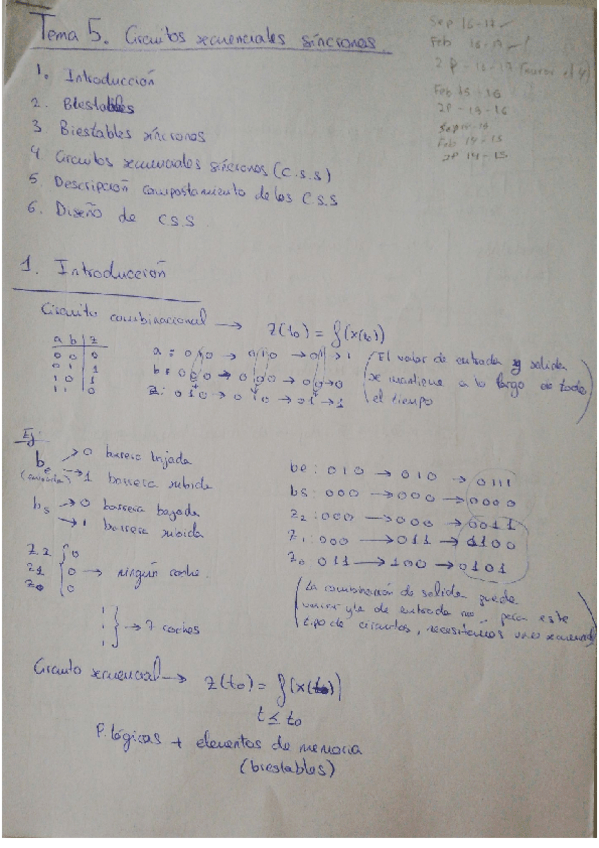 Tema 5. Circuitos secuenciales síncronos
Sep 16-17
Feb
Feb 15-16
2P - 15-16
Feb 14-15
2P 14-15
1. Introducción
2. Biestables
3 Biestables síncronos
4 Circuitos secuenciales síncronos (C.S.S)
5 Descripción comportamiento de los C.S.S
6. Diseño de C.S.S
1. Introducción
Circuito combinacional → z(t₀) = f(x(t₀))
a b z
0 0 0
0 1 1
1 0 1
1 1 0
a : 0 1 0 → 0 1 0 → 0 1 → 1
b : 0 0 0 → 0 0 0 → 0 0 → 0
z : 0 1 0 → 0 1 0 → 0 1 → 1
(El valor de entrada y salida
se mantiene a lo largo de todo
el tiempo)
Ej:
be → 0 barrera bajada
→ 1 barrera subida
bs → 0 barrera bajada
→ 1 barrera subida
z2 { 0
z1 { 0 → ningún coche.
z0 { 0
1
1 } → 7 coches
1
be : 0 1 0 → 0 1 0 → 0 1 1 1
bs : 0 0 0 → 0 0 0 → 0 0 0 0
z2 : 0 0 0 → 0 0 0 → 0 0 1 1
z1 : 0 0 0 → 0 1 1 → 1 1 0 0
z0 0 1 1 → 1 0 0 → 0 1 0 1
(La combinación de salida puede
variar y la de entrada no, para este
tipo de circuitos, necesitamos uno secuencial)
Circuito secuencial → z(t₀) = f(x(t))
t ≤ t₀
P. lógicas + elementos de memoria
(biestables)